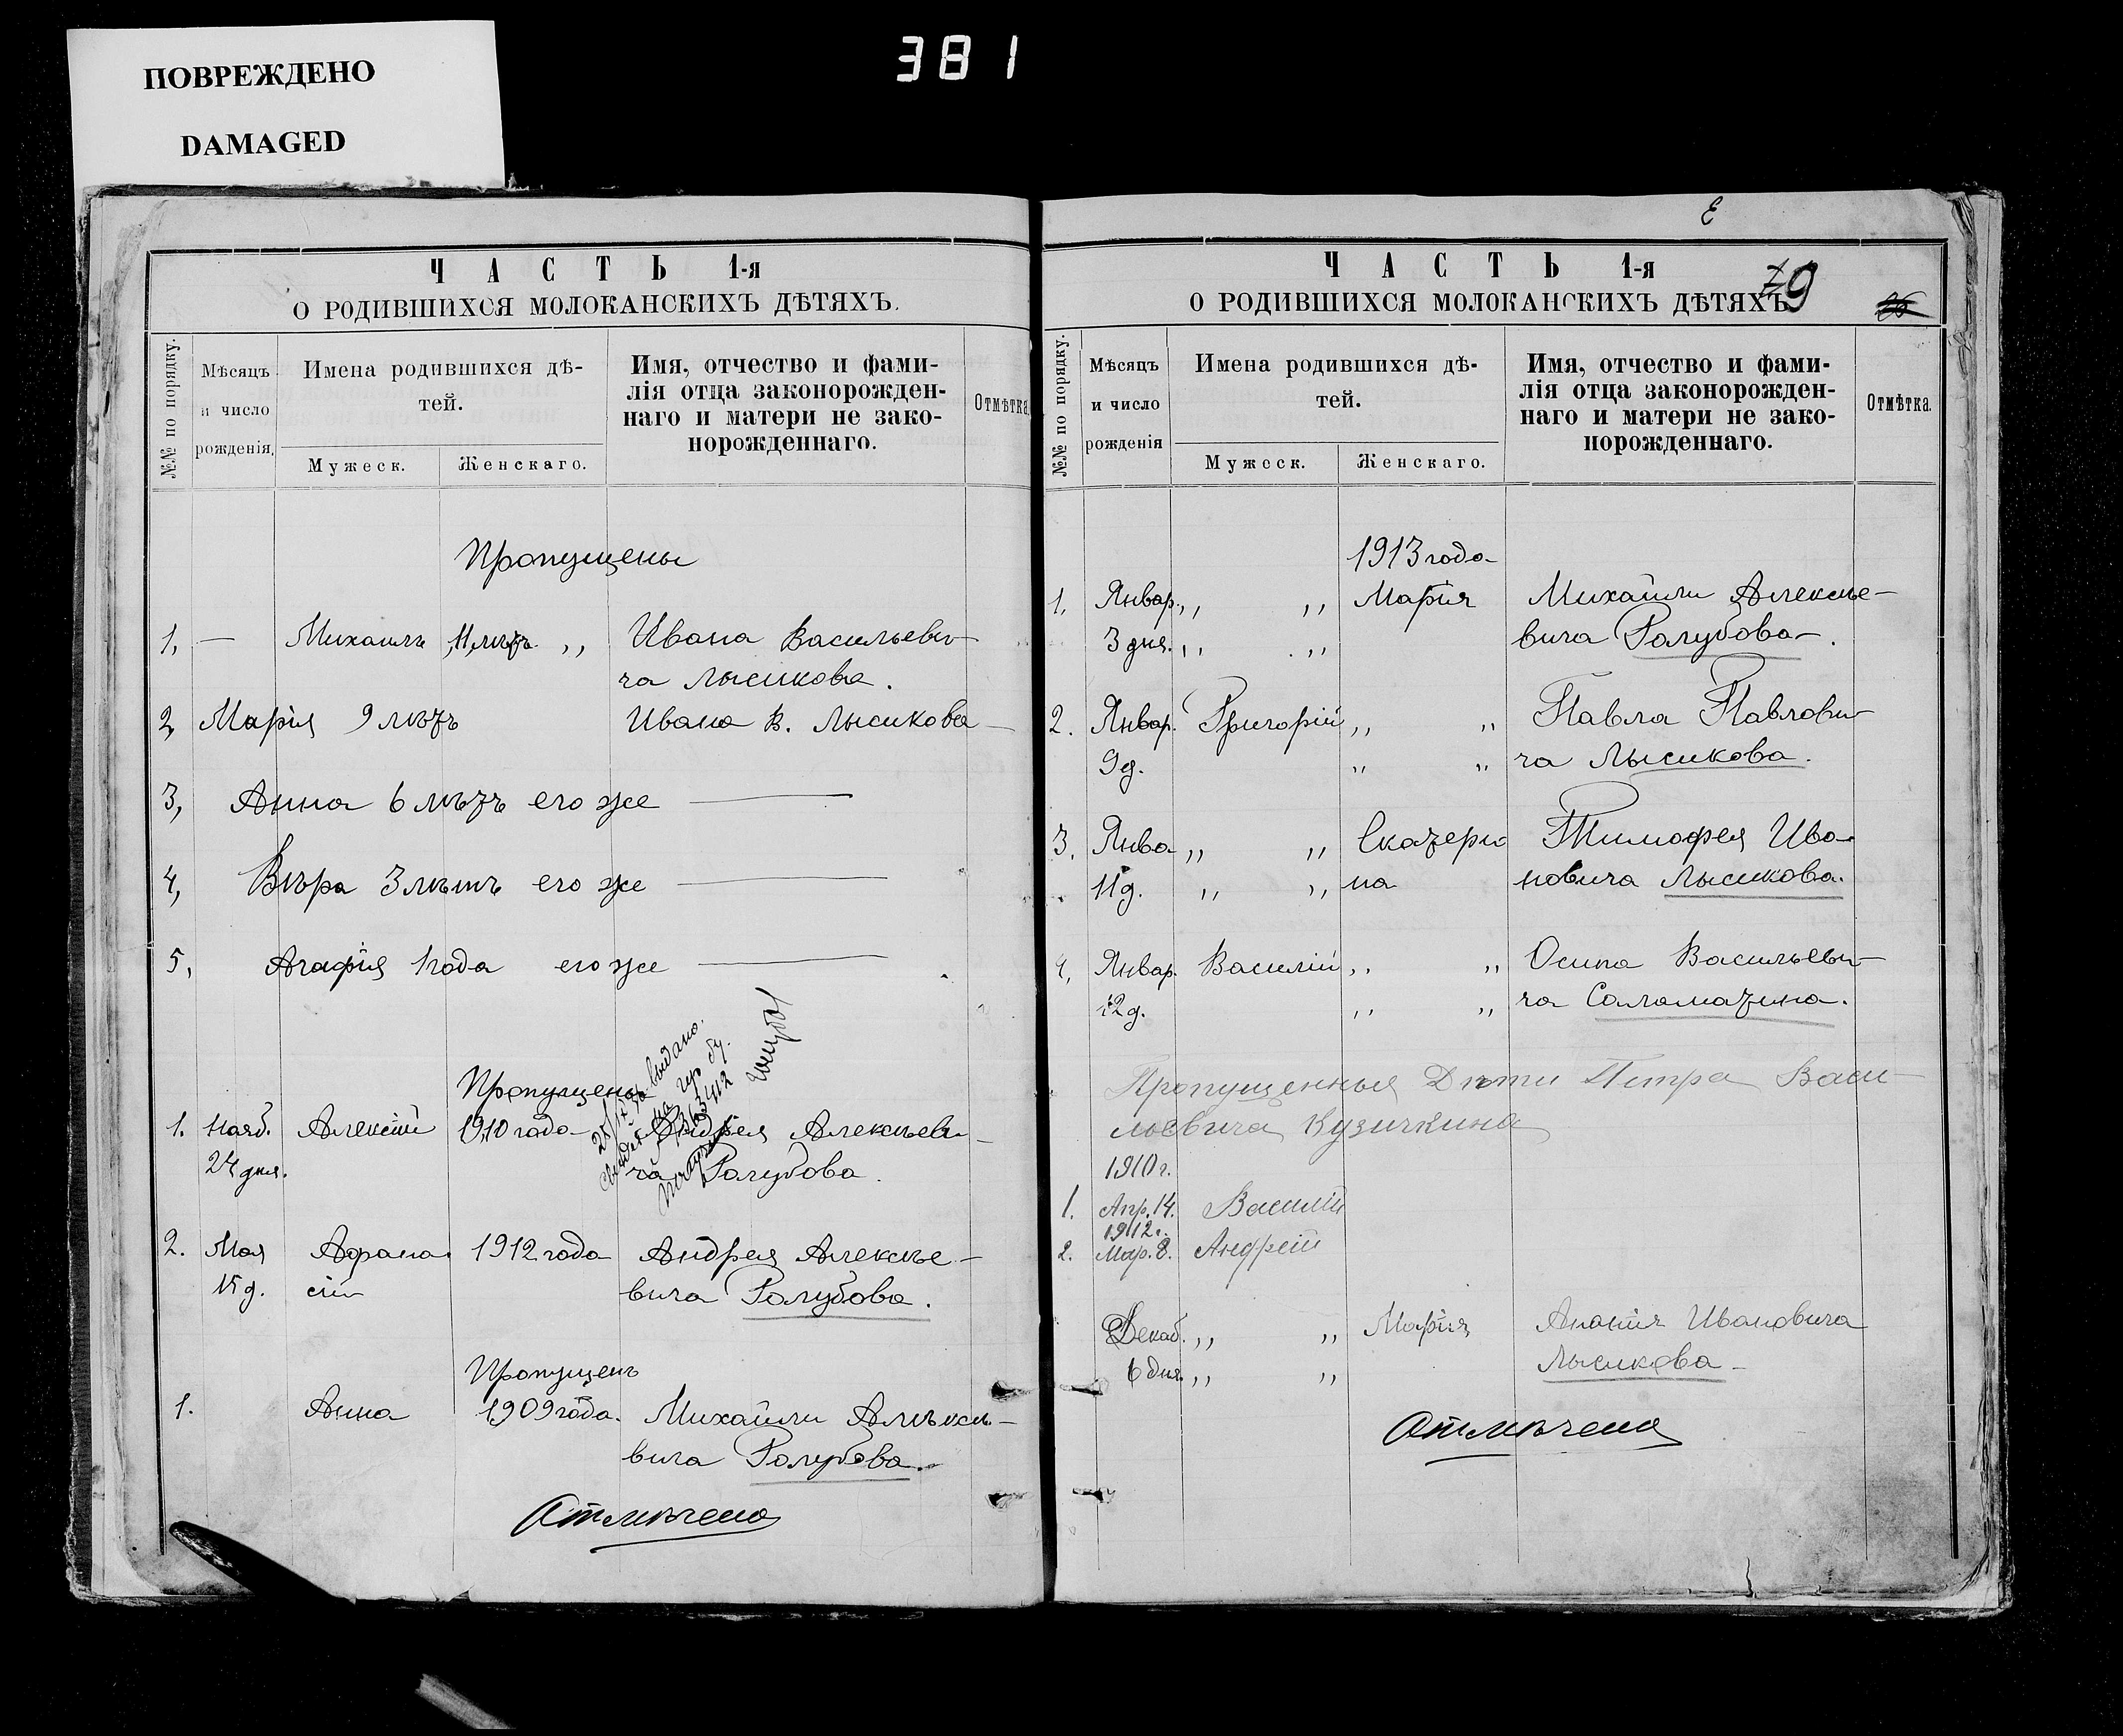 ПОВРЕЖДЕНО
DAMAGED
381
ЧАСТЬ 1-я
О РОДИВШИХСЯ МОЛОКАНСКИХЪ ДѢТЯХЪ.
№№ по порядку.
Мѣсяцъ и число рожденія.
Имена родившихся дѣ-
тей.
Мужеск.
Женскаго.
Имя, отчество и фами-
лія отца законорожден-
наго и матери не зако-
норожденнаго.
Отмѣтка.
Пропущены
1, — Михаилъ 11 лѣтъ ,, Ивана Васильеви-
ча Лысикова.
2, Марія 9 лѣтъ Ивана В. Лысикова
3, Анна 6 лѣтъ его же —
4, Вѣра 3 лѣтъ его же —
5, Агафія 1 года его же —
выдано.
Пропущены
1. Нояб. Алексѣй 1910 года Андрея Алексѣеви-
24 дня. ча Голубова.
2. Мая Афана 1912 года Андрея Алексѣе-
15 д. сій вича Голубова.
Пропущенъ
1. Анна 1909 года. Михаили Алѣксѣ-
вича Голубова.
Отмѣчено
Е
79
26
ЧАСТЬ 1-я
О РОДИВШИХСЯ МОЛОКАНСКИХЪ ДѢТЯХЪ
№№ по порядку.
Мѣсяцъ и число рожденія
Имена родившихся дѣ-
тей.
Мужеск.
Женскаго.
Имя, отчество и фами-
лія отца законорожден-
наго и матери не зако-
норожденнаго.
Отмѣтка.
1913 года
1. Январ. ,, ,, Марія Михаили Алексѣе-
3 дня. ,, ,, вича Голубова.
2. Январ. Григорій ,, ,, Павла Павлови-
9 д. ,, ,, ча Лысикова.
3. Янва ,, ,, Екатери Тимофея Ива-
11 д. ,, ,, на новича Лысикова.
4. Январ. Василій ,, ,, Осипа Васильеви-
12 д. ,, ,, ча Саламатина.
Пропущенныя Дѣти Петра Васи-
льевича Кузичкина
1910 г.
1. Апр. 14. Василій
1912 г.
2. Мар. 8. Андрей
Декаб. ,, ,, Марія Ананія Ивановича
6 дня. ,, ,, Лысикова
Отмѣчена